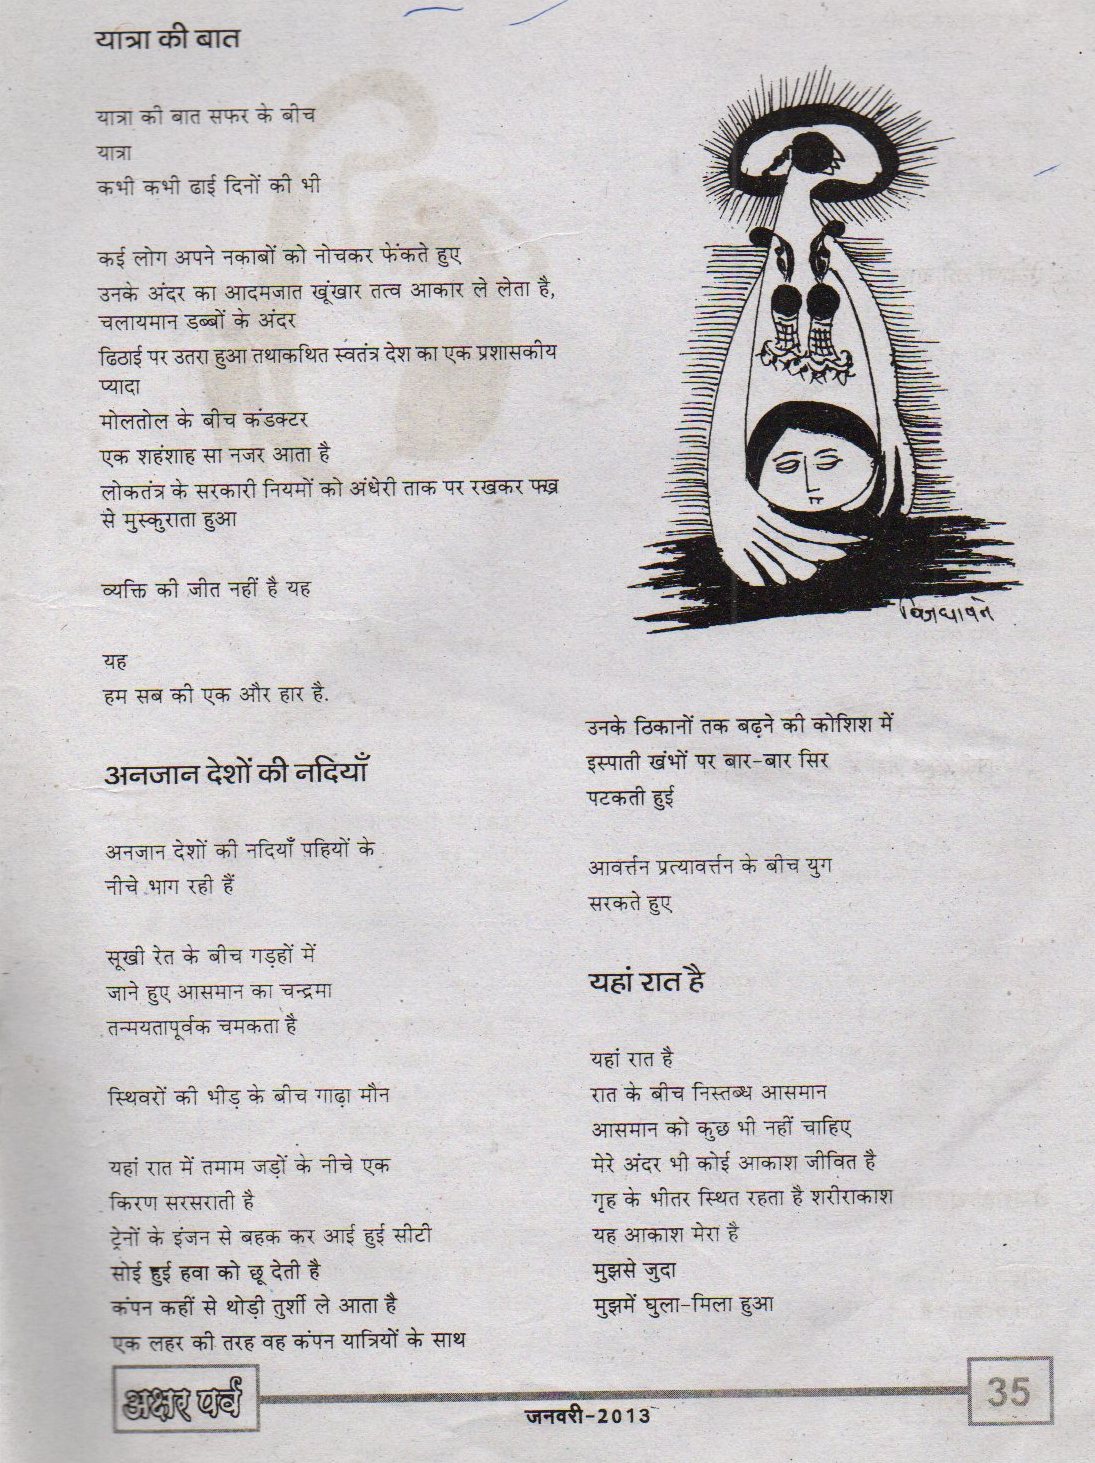 यात्रा की बात
यात्रा की बात सफर के बीच
यात्रा
कभी कभी ढाई दिनों की भी
कई लोग अपने नकाबों को नोचकर फेंकते हुए
उनके अंदर का आदमजात खूंखार तत्व आकार ले लेता है,
चलायमान डब्बों के अंदर
ढिठाई पर उतरा हुआ तथाकथित स्वतंत्र देश का एक प्रशासकीय
प्यादा
मोलतोल के बीच कंडक्टर
एक शहंशाह सा नजर आता है
लोकतंत्र के सरकारी नियमों को अंधेरी ताक पर रखकर फख्र
से मुस्कुराता हुआ
व्यक्ति की जीत नहीं है यह
यह
हम सब की एक और हार है.
अनजान देशों की नदियाँ
अनजान देशों की नदियाँ पहियों के
नीचे भाग रही हैं
सूखी रेत के बीच गड़हों में
जाने हुए आसमान का चन्द्रमा
तन्मयतापूर्वक चमकता है
स्थिवरों की भीड़ के बीच गाढ़ा मौन
यहां रात में तमाम जड़ों के नीचे एक
किरण सरसराती है
ट्रेनों के इंजन से बहक कर आई हुई सीटी
सोई हुई हवा को छू देती है
कंपन कहीं से थोड़ी तुर्शी ले आता है
एक लहर की तरह वह कंपन यात्रियों के साथ
उनके ठिकानों तक बढ़ने की कोशिश में
इस्पाती खंभों पर बार-बार सिर
पटकती हुई
आवर्त्तन प्रत्यावर्त्तन के बीच युग
सरकते हुए
यहां रात है
यहां रात है
रात के बीच निस्तब्ध आसमान
आसमान को कुछ भी नहीं चाहिए
मेरे अंदर भी कोई आकाश जीवित है
गृह के भीतर स्थित रहता है शरीराकाश
यह आकाश मेरा है
मुझसे जुदा
मुझमें घुला-मिला हुआ
अक्षर पर्व
जनवरी-2013
35